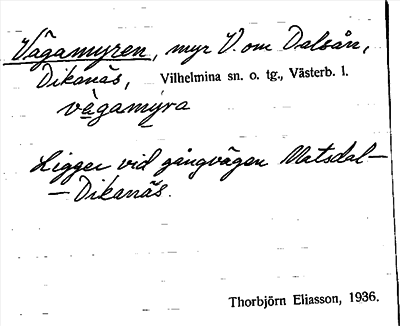 Vägamyren, myr V. om Dalsån,
Dikanäs, Vilhelmina sn. o. tg., Västerb. l.
vägamyra
Ligger vid gångvägen Matsdal—
—Dikanäs.
Thorbjörn Eliasson, 1936.